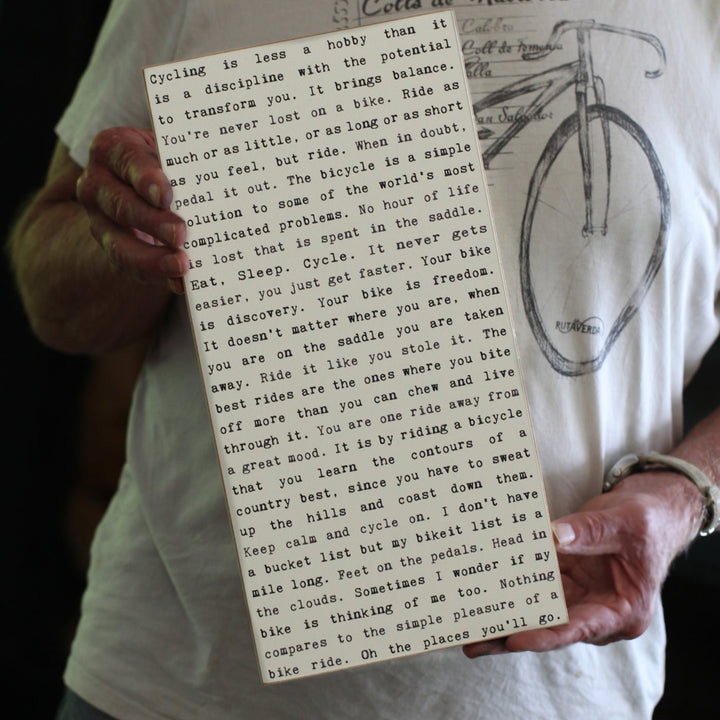 Colls de
Calobra
Coll de femenia
San Salvador
RUTAVERDA
Cycling is less a hobby than it
is a discipline with the potential
to transform you. It brings balance.
You're never lost on a bike. Ride as
much or as little, or as long or as short
as you feel, but ride. When in doubt,
pedal it out. The bicycle is a simple
solution to some of the world's most
complicated problems. No hour of life
is lost that is spent in the saddle.
Eat, Sleep. Cycle. It never gets
easier, you just get faster. Your bike
is discovery. Your bike is freedom.
It doesn't matter where you are, when
you are on the saddle you are taken
away. Ride it like you stole it. The
best rides are the ones where you bite
off more than you can chew and live
through it. You are one ride away from
a great mood. It is by riding a bicycle
that you learn the contours of a
country best, since you have to sweat
up the hills and coast down them.
Keep calm and cycle on. I don't have
a bucket list but my bikeit list is a
mile long. Feet on the pedals. Head in
the clouds. Sometimes I wonder if my
bike is thinking of me too. Nothing
compares to the simple pleasure of a
bike ride. Oh the places you'll go.